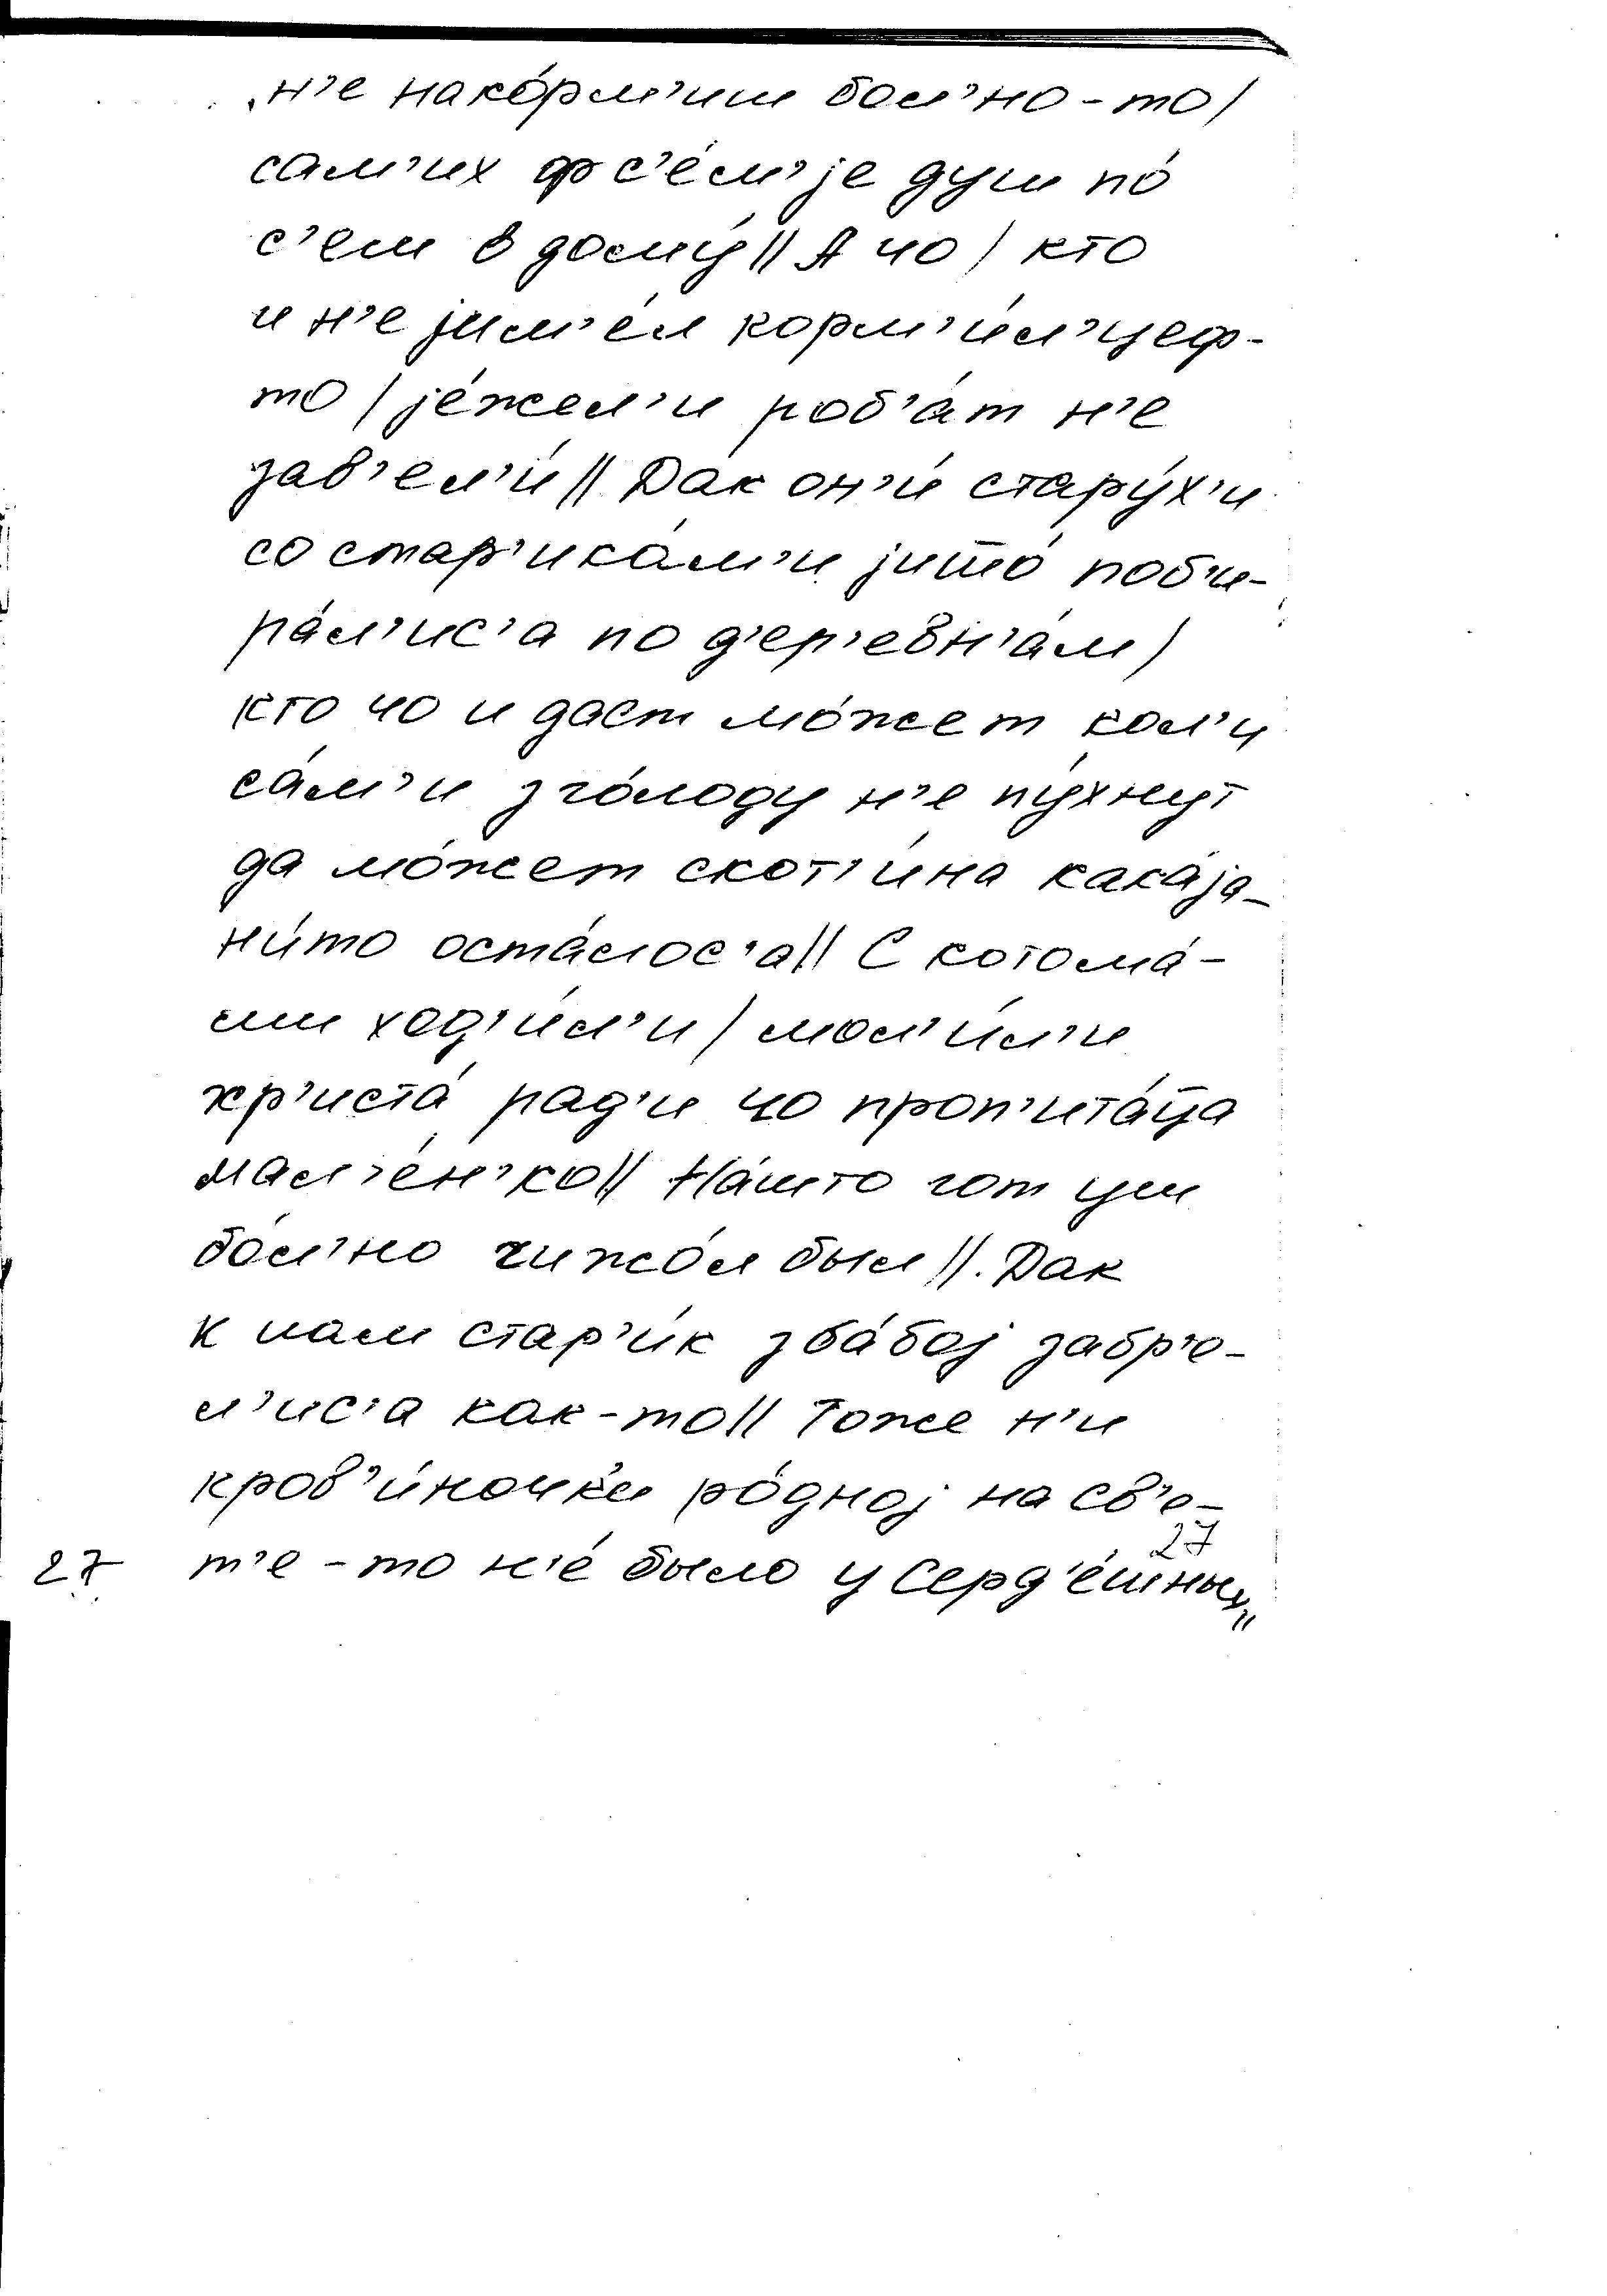 н'е нако́рм'иш бол'но-то/
сам'их ф с'е́м'је душ по́
с'ем в дому́ // А чо / кто
и н'е јим'е́л корм'и́л'цеф-
то / је́жел'и роб'а́т н'е
зав'ел'и́ // Дак он'и́ стару́х'и
со стар'ика́м'и јишо́ поб'и-
ра́л'ис'а по д'ер'евн'а́м /
кто чо и даст мо́жет кол'и
са́м'и з го́лоду н'е пу́хнут
да мо́жет скот'и́на кака́ја-
ни́то оста́лос'а // С котома́-
ми ход'и́л'и / мол'и́л'и
хр'иста́ рад'и чо проп'ита́ц̄а
мал'е́н'ко // На́што гот уш
бо́л'но чижо́л был //. Дак
к нам стар'и́к з ба́бој забр'е-
л'ис'а как-то // Тоже н'и
кров'и́ночк'и ро́дној на св'е-
т'е-то н'е́ было у серд'е́шных //
27
27